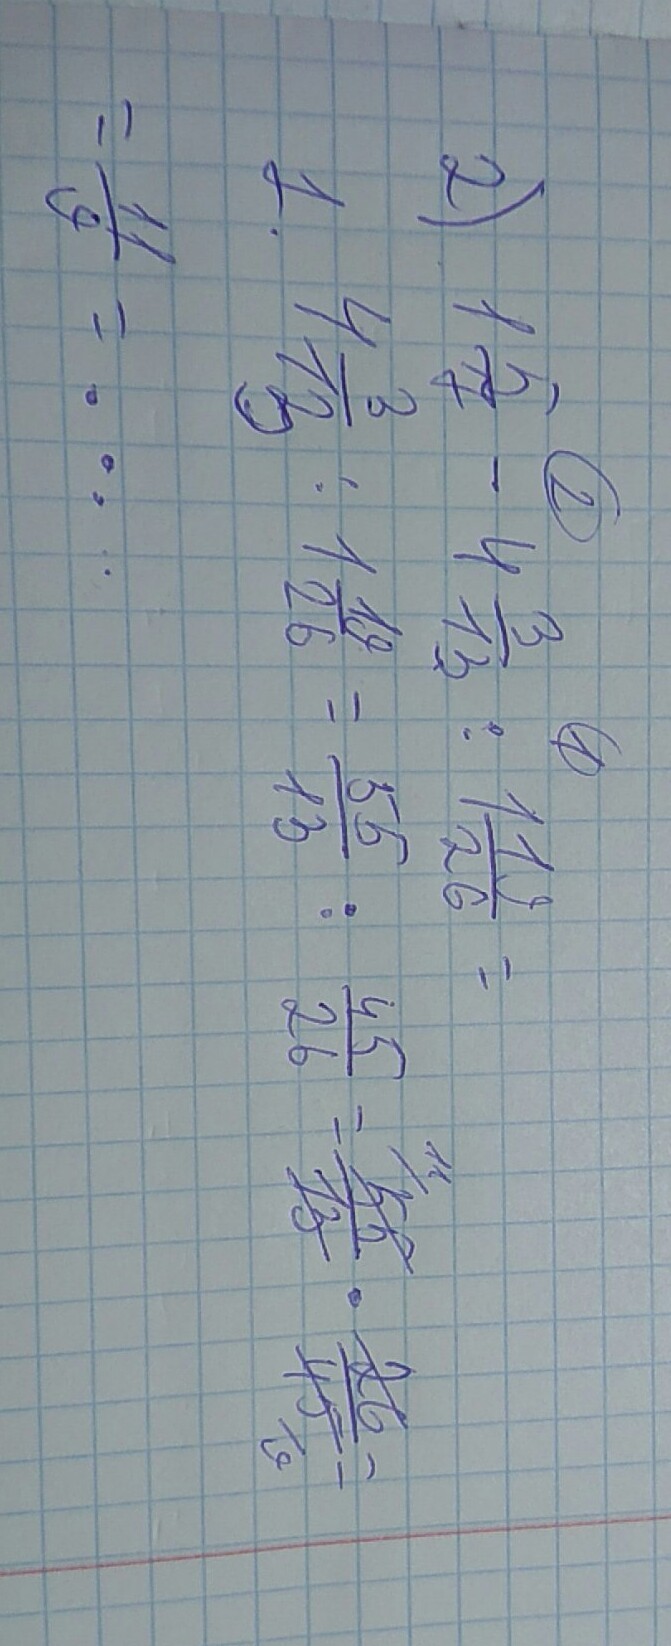 ② ①
2) 1 5/12 - 4 3/13 : 1 19/26 =
1. 4 3/13 : 1 19/26 = 55/13 : 45/26 = 55/13 · 26/45 =
= 11/9 = . . . .